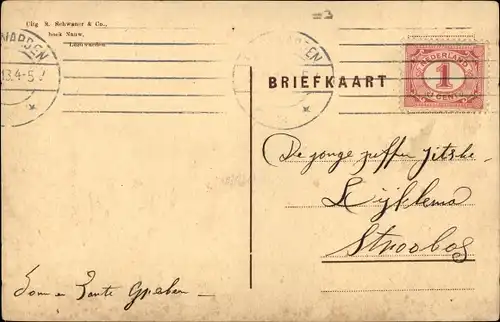 Uitg. R. Schwaner & Co.,
hoek Nauw,
Leeuwarden
WARDEN
13.4-5
BRIEFKAART
NEDERLAND
1
CENT
De jonge juffer Jitske
Dijklema
Stroobos
Oom en Tante